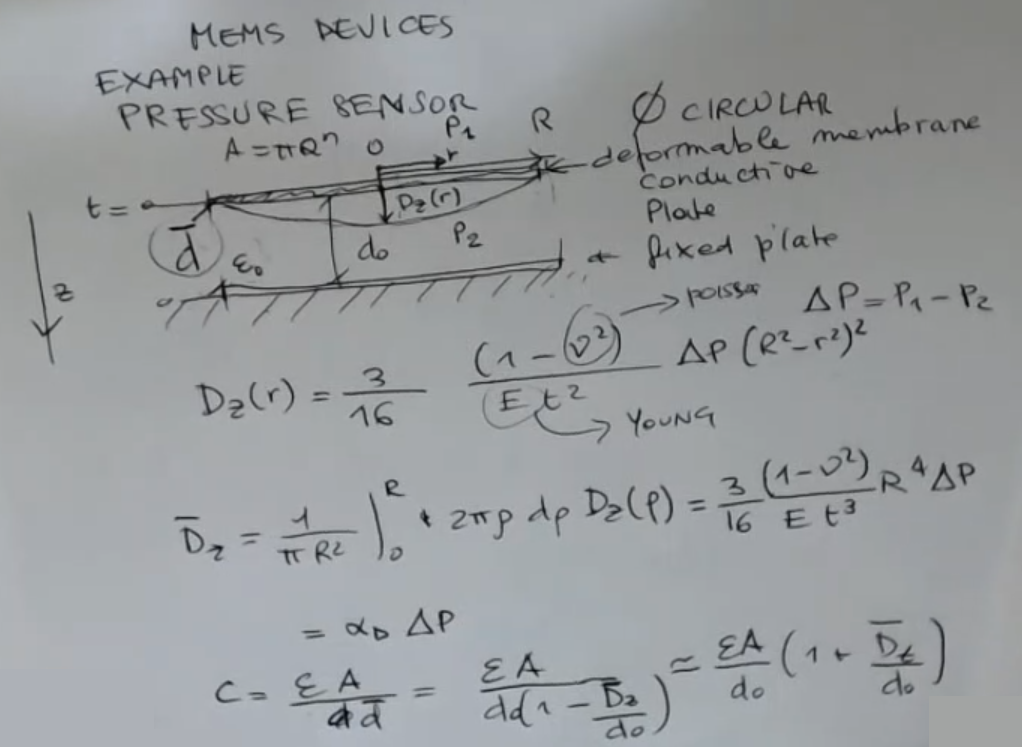 MEMS DEVICES
EXAMPLE
PRESSURE SENSOR
A = πR² O P₁ r R ∅ CIRCULAR
deformable membrane
conductive
Plate
t = D_z(r)
d̄ ε₀ d₀ P₂ fixed plate
z
→ poisson ΔP = P₁ − P₂
D_z(r) = 3/16 (1 − ν²)/(E t²) ΔP (R² − r²)²
→ YOUNG
D̄_z = 1/(πR²) ∫₀ᴿ 2πρ dρ D_z(ρ) = 3/16 (1−ν²)/(E t³) R⁴ ΔP
= α_D ΔP
C = εA/d̄ = εA/(dd(1 − D̄_z/d₀)) ≈ εA/d₀ (1 + D̄_z/d₀)